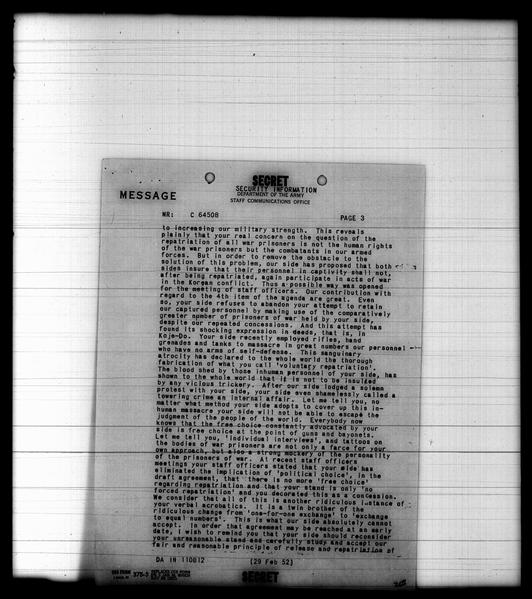 SECRET
SECURITY INFORMATION
DEPARTMENT OF THE ARMY
STAFF COMMUNICATIONS OFFICE
MESSAGE
NR: C 64508 PAGE 3
to increasing our military strength. This reveals
plainly that your real concern on the question of the
repatriation of all war prisoners is not the human rights
of the war prisoners but the combatants in our armed
forces. But in order to remove the obstacle to the
solution of this problem, our side has proposed that both
sides insure that their personnel in captivity shall not,
after being repatriated, again participate in acts of war
in the Korean conflict. Thus a possible way was opened
for the meeting of staff officers. Our contribution with
regard to the 4th item of the agenda are great. Even
so, your side refuses to abandon your attempt to retain
our captured personnel by making use of the comparatively
greater number of prisoners of war held by your side,
despite our repeated concessions. And this attempt has
found its shocking expression in deeds, that is, in
Koje-Do. Your side recently employed rifles, hand
grenades and tanks to massacre in great numbers our personnel
who have no arms of self-defense. This sanguinary
atrocity has declared to the whole world the thorough
fabrication of what you call 'voluntary repatriation'.
The blood shed by those inhuman personnel of your side, has
shown to the whole world that it is not to be insulted
by any vicious trickery. After our side lodged a solemn
protest with your side, your side even shamelessly called a
towering crime an internal affair. Let me tell you, no
matter what method your side adopts to cover up this in-
human massacre your side will not be able to escape the
judgment of the people of the world. Everybody now
knows that the free choice constantly advocated by your
side is free choice at the point of guns and bayonets.
Let me tell you, 'individual interviews', and tattoos on
the bodies of war prisoners are not only a farce for your
own approach, but also a strong mockery of the personality
of the prisoners of war. At recent staff officers
meetings your staff officers stated that your side has
eliminated the implication of 'political choice', in the
draft agreement, that there is no more 'free choice'
regarding repatriation and that your stand is only 'no
forced repatriation' and you decorated this as a concession.
We consider that all of this is another ridiculous instance of
your verbal acrobatics. It is a twin brother of the
ridiculous change from 'one-for-one exchange' to 'exchange
to equal numbers'. This is what our side absolutely cannot
accept. In order that agreement may be reached at an early
date, I wish to remind you that your side should reconsider
your unreasonable stand and carefully study and accept our
fair and reasonable principle of release and repatriation of
DA IN 110812 (29 Feb 52)
SECRET
375-3